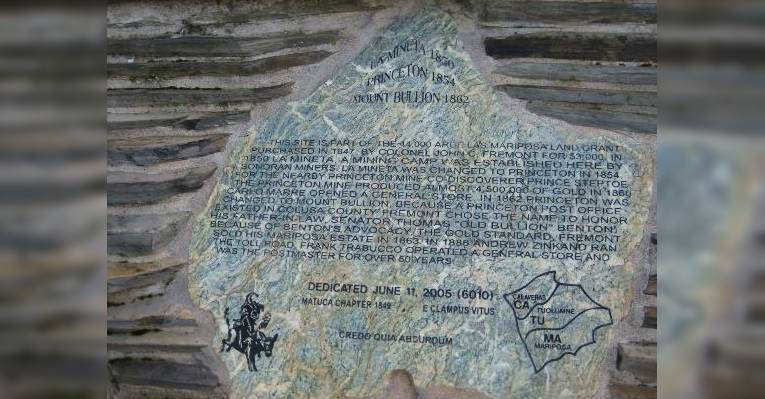 LA MINETA 1850
PRINCETON 1854
MOUNT BULLION 1862
THIS SITE IS PART OF THE 44,000 ACRE LAS MARIPOSA LAND GRANT
PURCHASED IN 1847, BY COLONEL JOHN C. FREMONT FOR $3,000. IN
1850 LA MINETA, A MINING CAMP WAS ESTABLISHED HERE BY
SONORAN MINERS. LA MINETA WAS CHANGED TO PRINCETON IN 1854
FOR THE NEARBY PRINCETON MINE CO-DISCOVERER PRINCE STEPTOE.
THE PRINCETON MINE PRODUCED ALMOST 4,500,000 OF GOLD. IN 1860
CARLO MARRE OPENED A GENERAL STORE. IN 1862 PRINCETON WAS
CHANGED TO MOUNT BULLION, BECAUSE A PRINCETON POST OFFICE
EXISTED IN COLUSA COUNTY. FREMONT CHOSE THE NAME TO HONOR
HIS FATHER-IN-LAW, SENATOR THOMAS "OLD BULLION" BENTON,
BECAUSE OF BENTON'S ADVOCACY, THE GOLD STANDARD. FREMONT
SOLD HIS MARIPOSA ESTATE IN 1863. IN 1886 ANDREW ZINKAND RAN
THE TOLL ROAD, FRANK TRABUCCO OPERATED A GENERAL STORE AND
WAS THE POSTMASTER FOR OVER 50 YEARS.
DEDICATED JUNE 11, 2005 (6010)
MATUCA CHAPTER 1849 E CLAMPUS VITUS
CREDO QUIA ABSURDUM
CALAVERAS
CA
TUOLUMNE
TU
MA
MARIPOSA